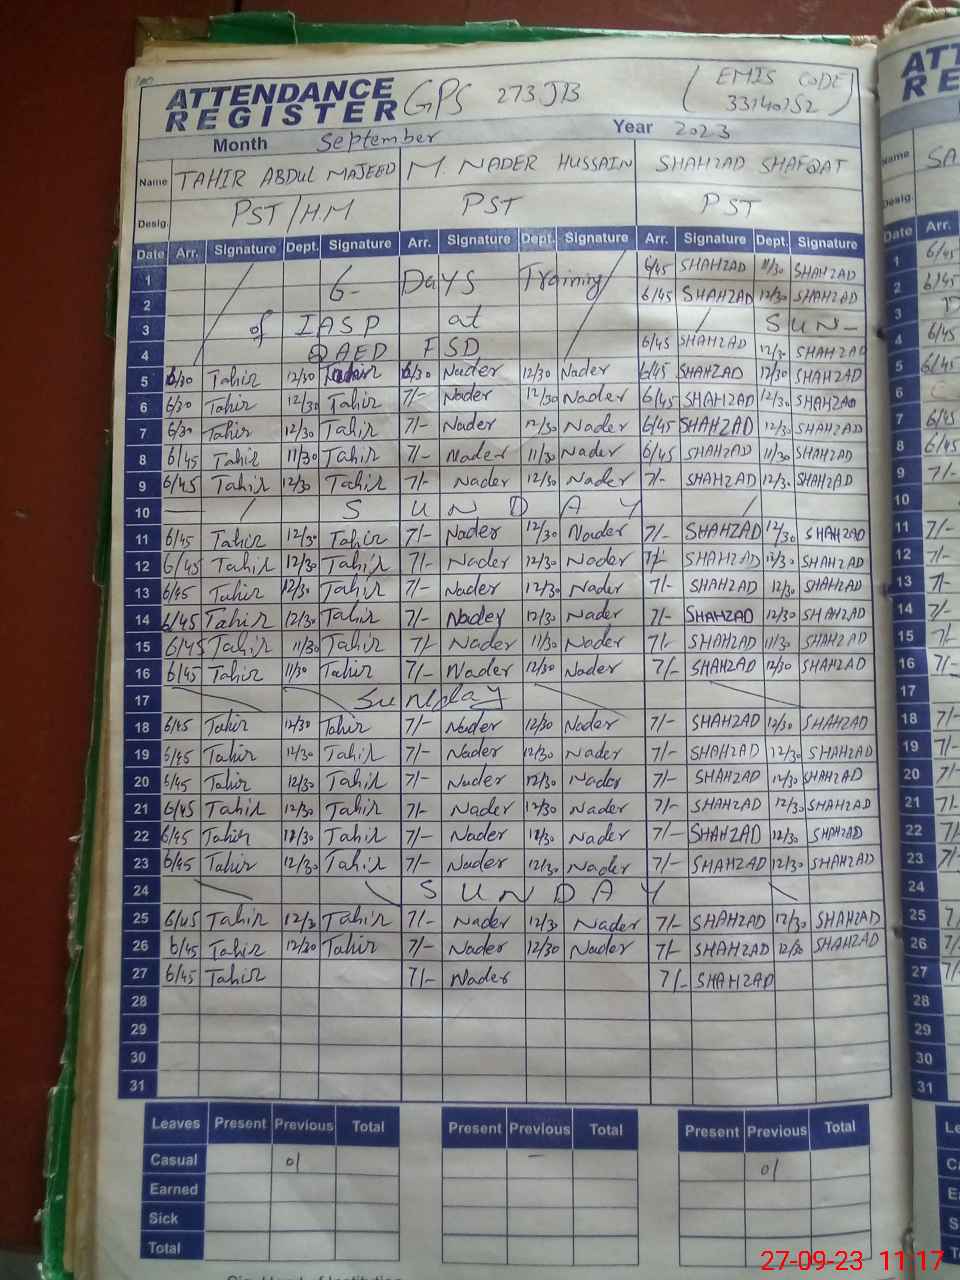 ATTENDANCE REGISTER GPS 273JB (EMIS CODE 33140152)
Month September Year 2023
Name TAHIR ABDUL MAJEED M. NADER HUSSAIN SHAHZAD SHAFQAT
Desig. PST/H.M PST PST
Date Arr. Signature Dept. Signature Arr. Signature Dept. Signature Arr. Signature Dept. Signature
1 6- Days Training 6/45 SHAHZAD 11/30 SHAHZAD
2 6/45 SHAHZAD 12/30 SHAHZAD
3 of IASP at SUN-
4 QAED FSD 6/45 SHAHZAD 12/30 SHAHZAD
5 6/30 Tahir 12/30 Tahir 6/30 Nader 12/30 Nader 6/45 SHAHZAD 12/30 SHAHZAD
6 6/30 Tahir 12/30 Tahir 7/- Nader 12/30 Nader 6/45 SHAHZAD 12/30 SHAHZAD
7 6/30 Tahir 12/30 Tahir 7/- Nader 12/30 Nader 6/45 SHAHZAD 12/30 SHAHZAD
8 6/45 Tahir 11/30 Tahir 7/- Nader 11/30 Nader 6/45 SHAHZAD 11/30 SHAHZAD
9 6/45 Tahir 12/30 Tahir 7/- Nader 12/30 Nader 7/- SHAHZAD 12/30 SHAHZAD
10 SUNDAY
11 6/45 Tahir 12/30 Tahir 7/- Nader 12/30 Nader 7/- SHAHZAD 12/30 SHAHZAD
12 6/45 Tahir 12/30 Tahir 7/- Nader 12/30 Nader 7/- SHAHZAD 12/30 SHAHZAD
13 6/45 Tahir 12/30 Tahir 7/- Nader 12/30 Nader 7/- SHAHZAD 12/30 SHAHZAD
14 6/45 Tahir 12/30 Tahir 7/- Nader 12/30 Nader 7/- SHAHZAD 12/30 SHAHZAD
15 6/45 Tahir 11/30 Tahir 7/- Nader 11/30 Nader 7/- SHAHZAD 11/30 SHAHZAD
16 6/45 Tahir 11/30 Tahir 7/- Nader 12/30 Nader 7/- SHAHZAD 12/30 SHAHZAD
17 Sunday
18 6/45 Tahir 12/30 Tahir 7/- Nader 12/30 Nader 7/- SHAHZAD 12/30 SHAHZAD
19 6/45 Tahir 12/30 Tahir 7/- Nader 12/30 Nader 7/- SHAHZAD 12/30 SHAHZAD
20 6/45 Tahir 12/30 Tahir 7/- Nader 12/30 Nader 7/- SHAHZAD 12/30 SHAHZAD
21 6/45 Tahir 12/30 Tahir 7/- Nader 12/30 Nader 7/- SHAHZAD 12/30 SHAHZAD
22 6/45 Tahir 12/30 Tahir 7/- Nader 12/30 Nader 7/- SHAHZAD 12/30 SHAHZAD
23 6/45 Tahir 12/30 Tahir 7/- Nader 12/30 Nader 7/- SHAHZAD 12/30 SHAHZAD
24 SUNDAY
25 6/45 Tahir 12/30 Tahir 7/- Nader 12/30 Nader 7/- SHAHZAD 12/30 SHAHZAD
26 6/45 Tahir 12/30 Tahir 7/- Nader 12/30 Nader 7/- SHAHZAD 12/30 SHAHZAD
27 6/45 Tahir 7/- Nader 7/- SHAHZAD
28
29
30
31
Leaves Present Previous Total Present Previous Total Present Previous Total
Casual 01 - 01
Earned
Sick
Total
Name
Date Arr.
1 6/45
2 6/45
3
4 6/45
5 6/45
6
7 6/45
8 6/45
9 7/-
10
11 7/-
12 7/-
13 7/-
14 7/-
15 7/-
16 7/-
17
18 7/-
19 7/-
20 7/-
21 7/-
22 7/-
23 7/-
24
25 7/-
26 7/-
27 7/-
28
29
30
31
27-09-23 11:17